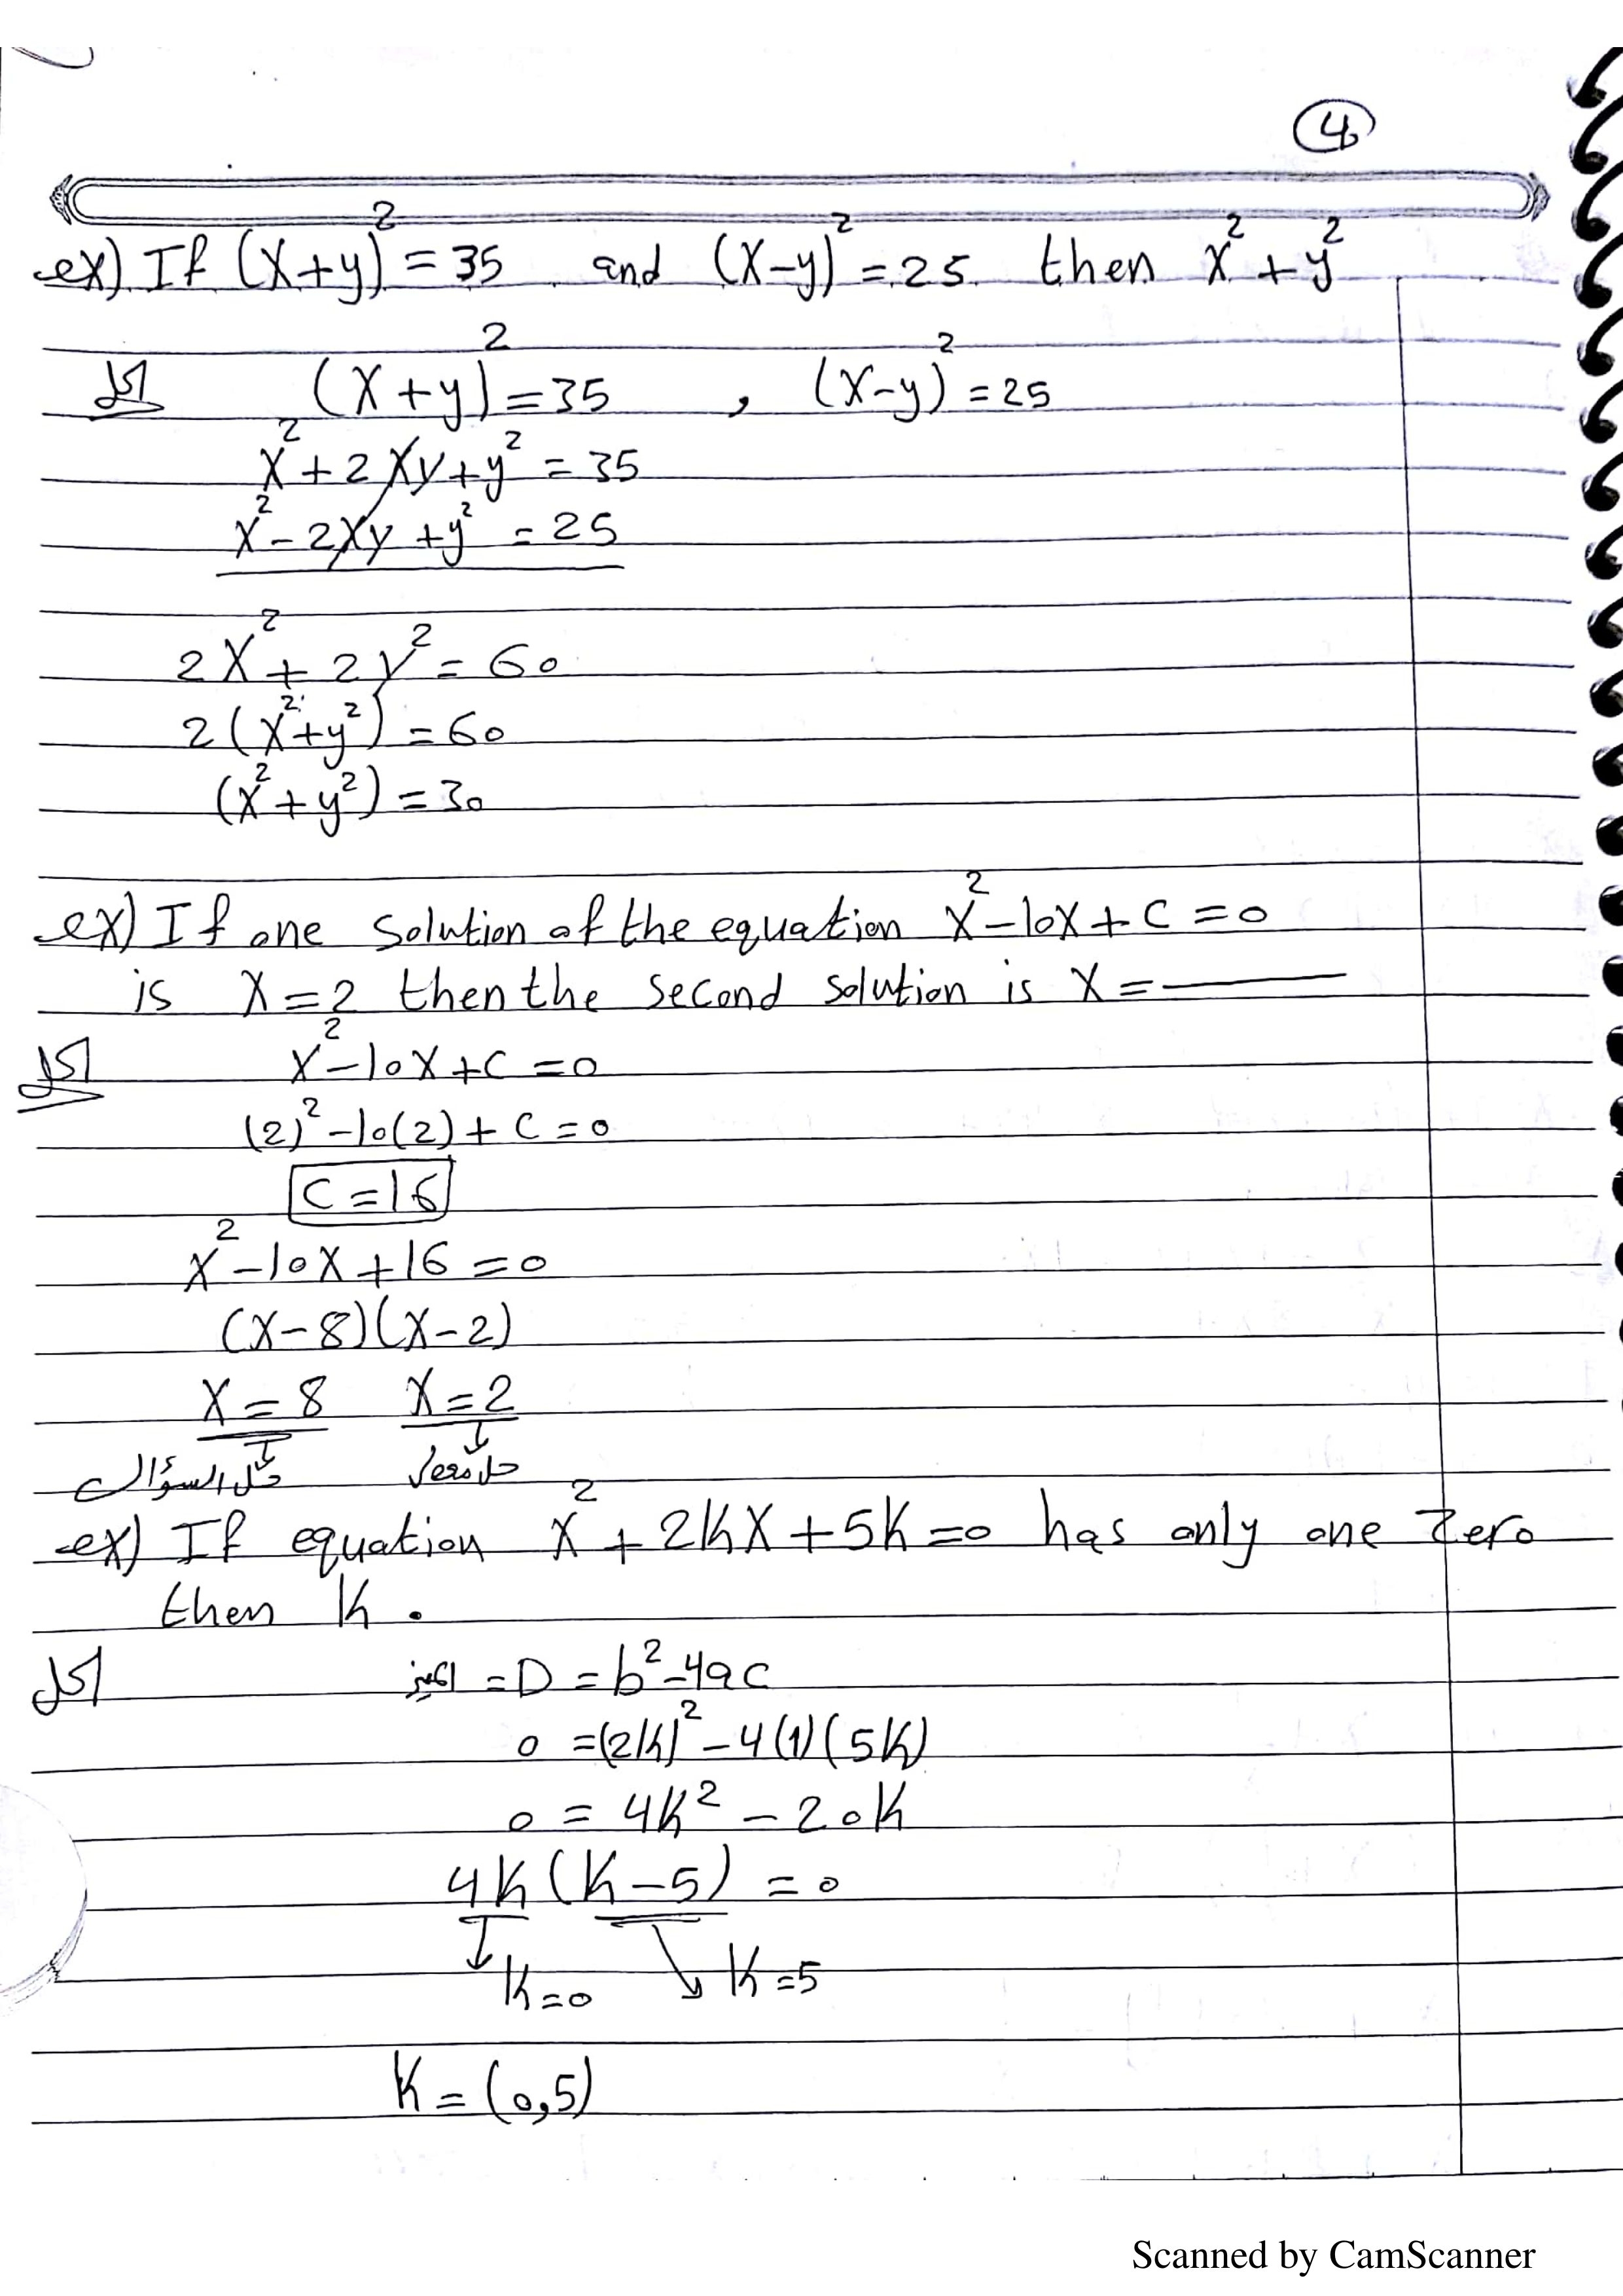 4
ex) If (x+y)² = 35 and (x-y)² = 25 then x² + y²
الحل (x+y)² = 35 , (x-y)² = 25
x² + 2xy + y² = 35
x² - 2xy + y² = 25
2x² + 2y² = 60
2(x² + y²) = 60
(x² + y²) = 30
ex) If one solution of the equation x² - 10x + c = 0
is x = 2 then the second solution is x = ____
الحل x² - 10x + c = 0
(2)² - 10(2) + c = 0
c = 16
x² - 10x + 16 = 0
(x - 8)(x - 2)
x = 8 x = 2
حل السؤال حل
ex) If equation x² + 2kx + 5k = 0 has only one zero
then k .
الحل المميز = D = b² - 4ac
0 = (2k)² - 4(1)(5k)
0 = 4k² - 20k
4k(k - 5) = 0
k = 0 k = 5
k = (0,5)
Scanned by CamScanner